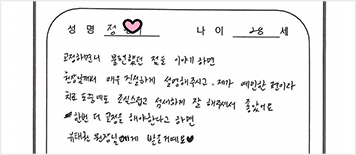 성 명 정 나 이 28 세
교정하면서 불편했던 점을 이야기 하면
원장님께서 매우 친절하게 설명해주시고, 제가 예민한 편이라
치료 도중에도 조심스럽고 섬세하게 잘 해주셔서 좋았어요
한번 더 교정을 해야한다고 하면
유태환 원장님에게 받을거예요♥